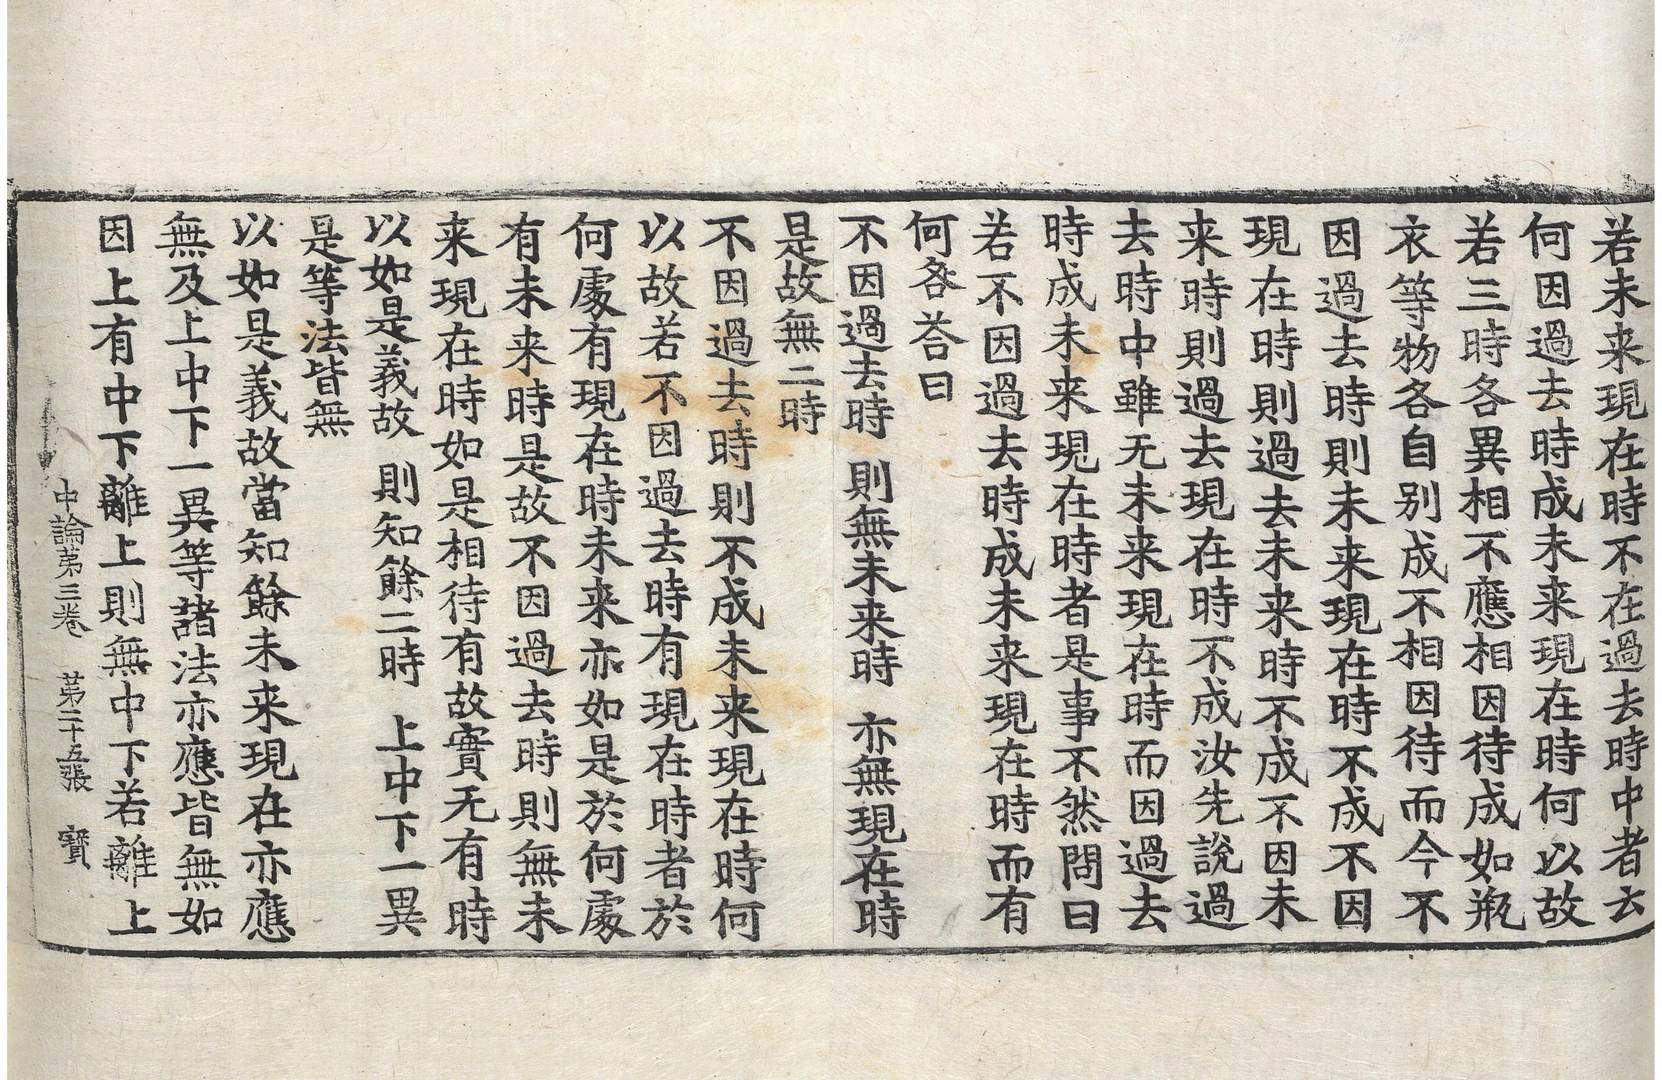 若未来現在時不在過去時中者云
何因過去時成未来現在時何以故
若三時各異相不應相因待成如瓶
衣等物各自別成不相因待而今不
因過去時則未来現在時不成不因
現在時則過去未来時不成不因未
来時則過去現在時不成汝先說過
去時中雖无未来現在時而因過去
時成未来現在時者是事不然問曰
若不因過去時成未来現在時而有
何咎荅曰
不因過去時　則無未来時　亦無現在時
是故無二時
不因過去時則不成未来現在時何
以故若不因過去時有現在時者於
何處有現在時未来亦如是於何處
有未来時是故不因過去時則無未
来現在時如是相待有故實无有時
以如是義故　則知餘二時　上中下一異
是等法皆無
以如是義故當知餘未来現在亦應
無及上中下一異等諸法亦應皆無如
因上有中下離上則無中下若離上
中論第三卷　第二十五張　寶